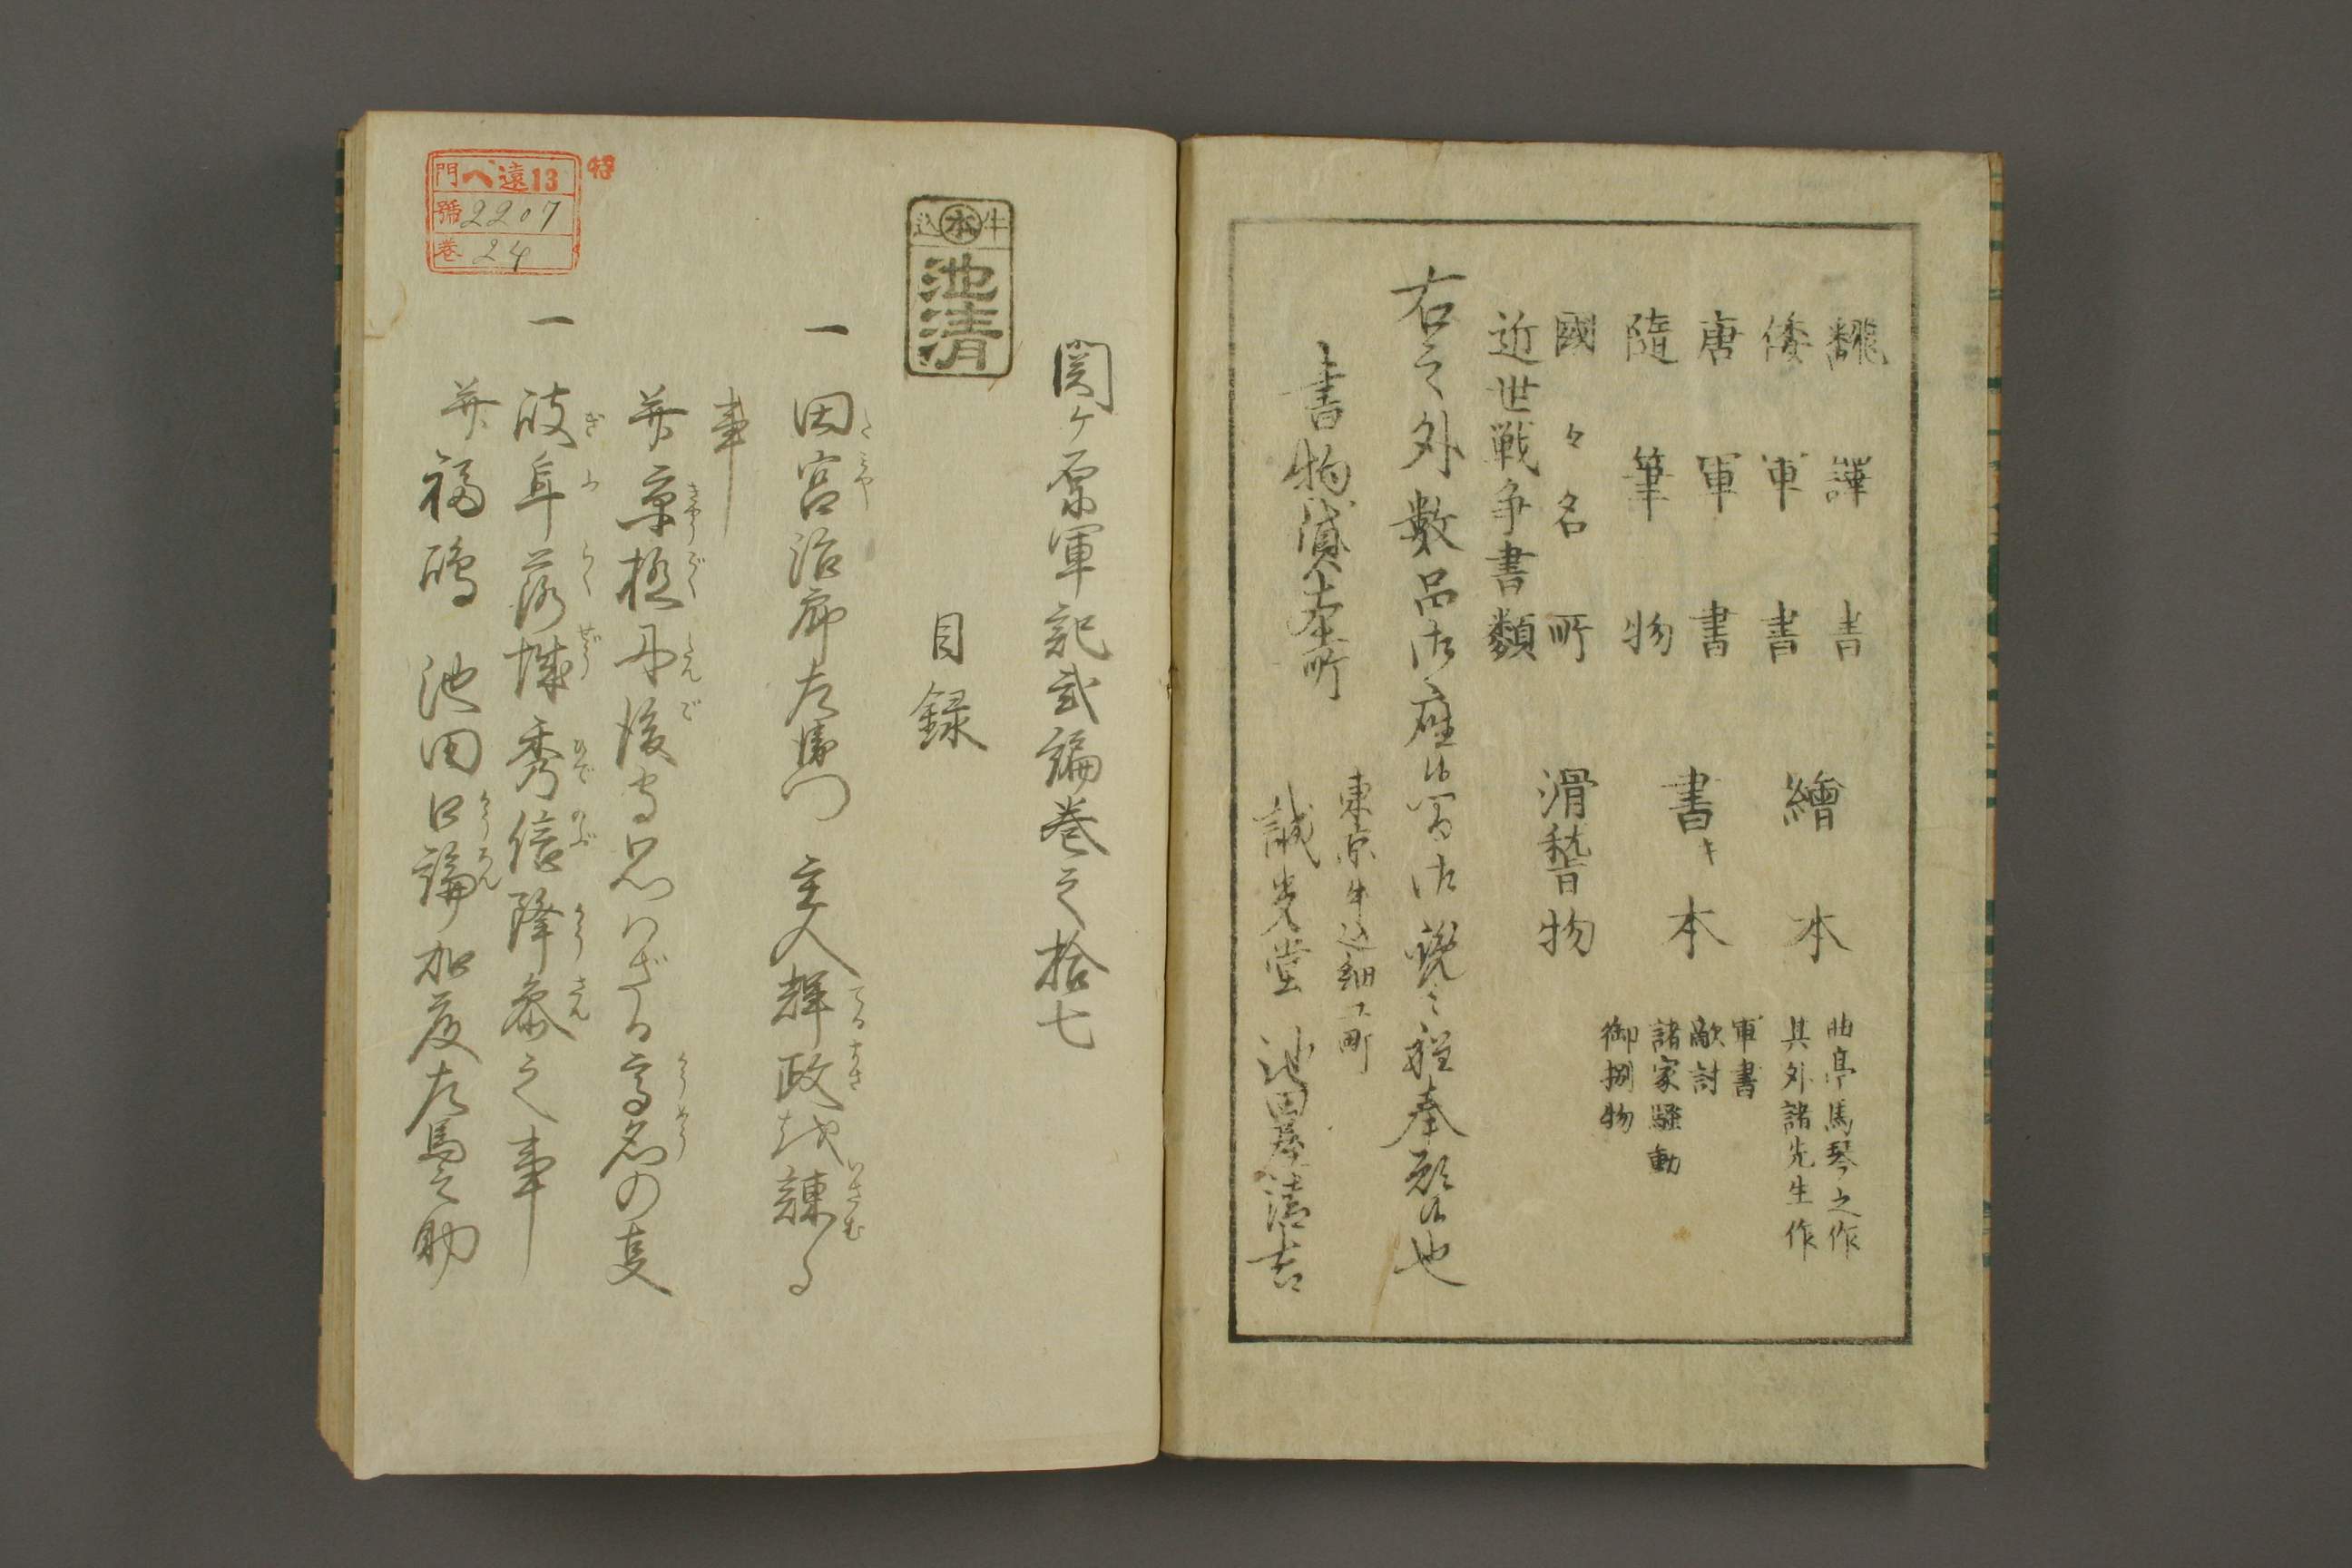 飜譯書
倭軍書
唐軍書
隨筆物
國々名所
近世戦争書類
繪本
書キ本
滑稽物
曲亭馬琴之作
其外諸先生作
軍書
敵討
諸家騒動
御捌物
右之外數品御座候間御覧之程奉願候也
書物貸本所
東京牛込細工町
誠光堂 池田屋清吉
関ヶ原軍記弐編巻之拾七
牛本込
池清
目録
一 田宮治郎左衛門 主人輝政越諌る
事
并京極丹後守思はざる高名の支
一 岐阜落城秀信降参之事
并福嶋 池田口論加藤左馬之助
特
門 へ遠13
號 2207
巻 24